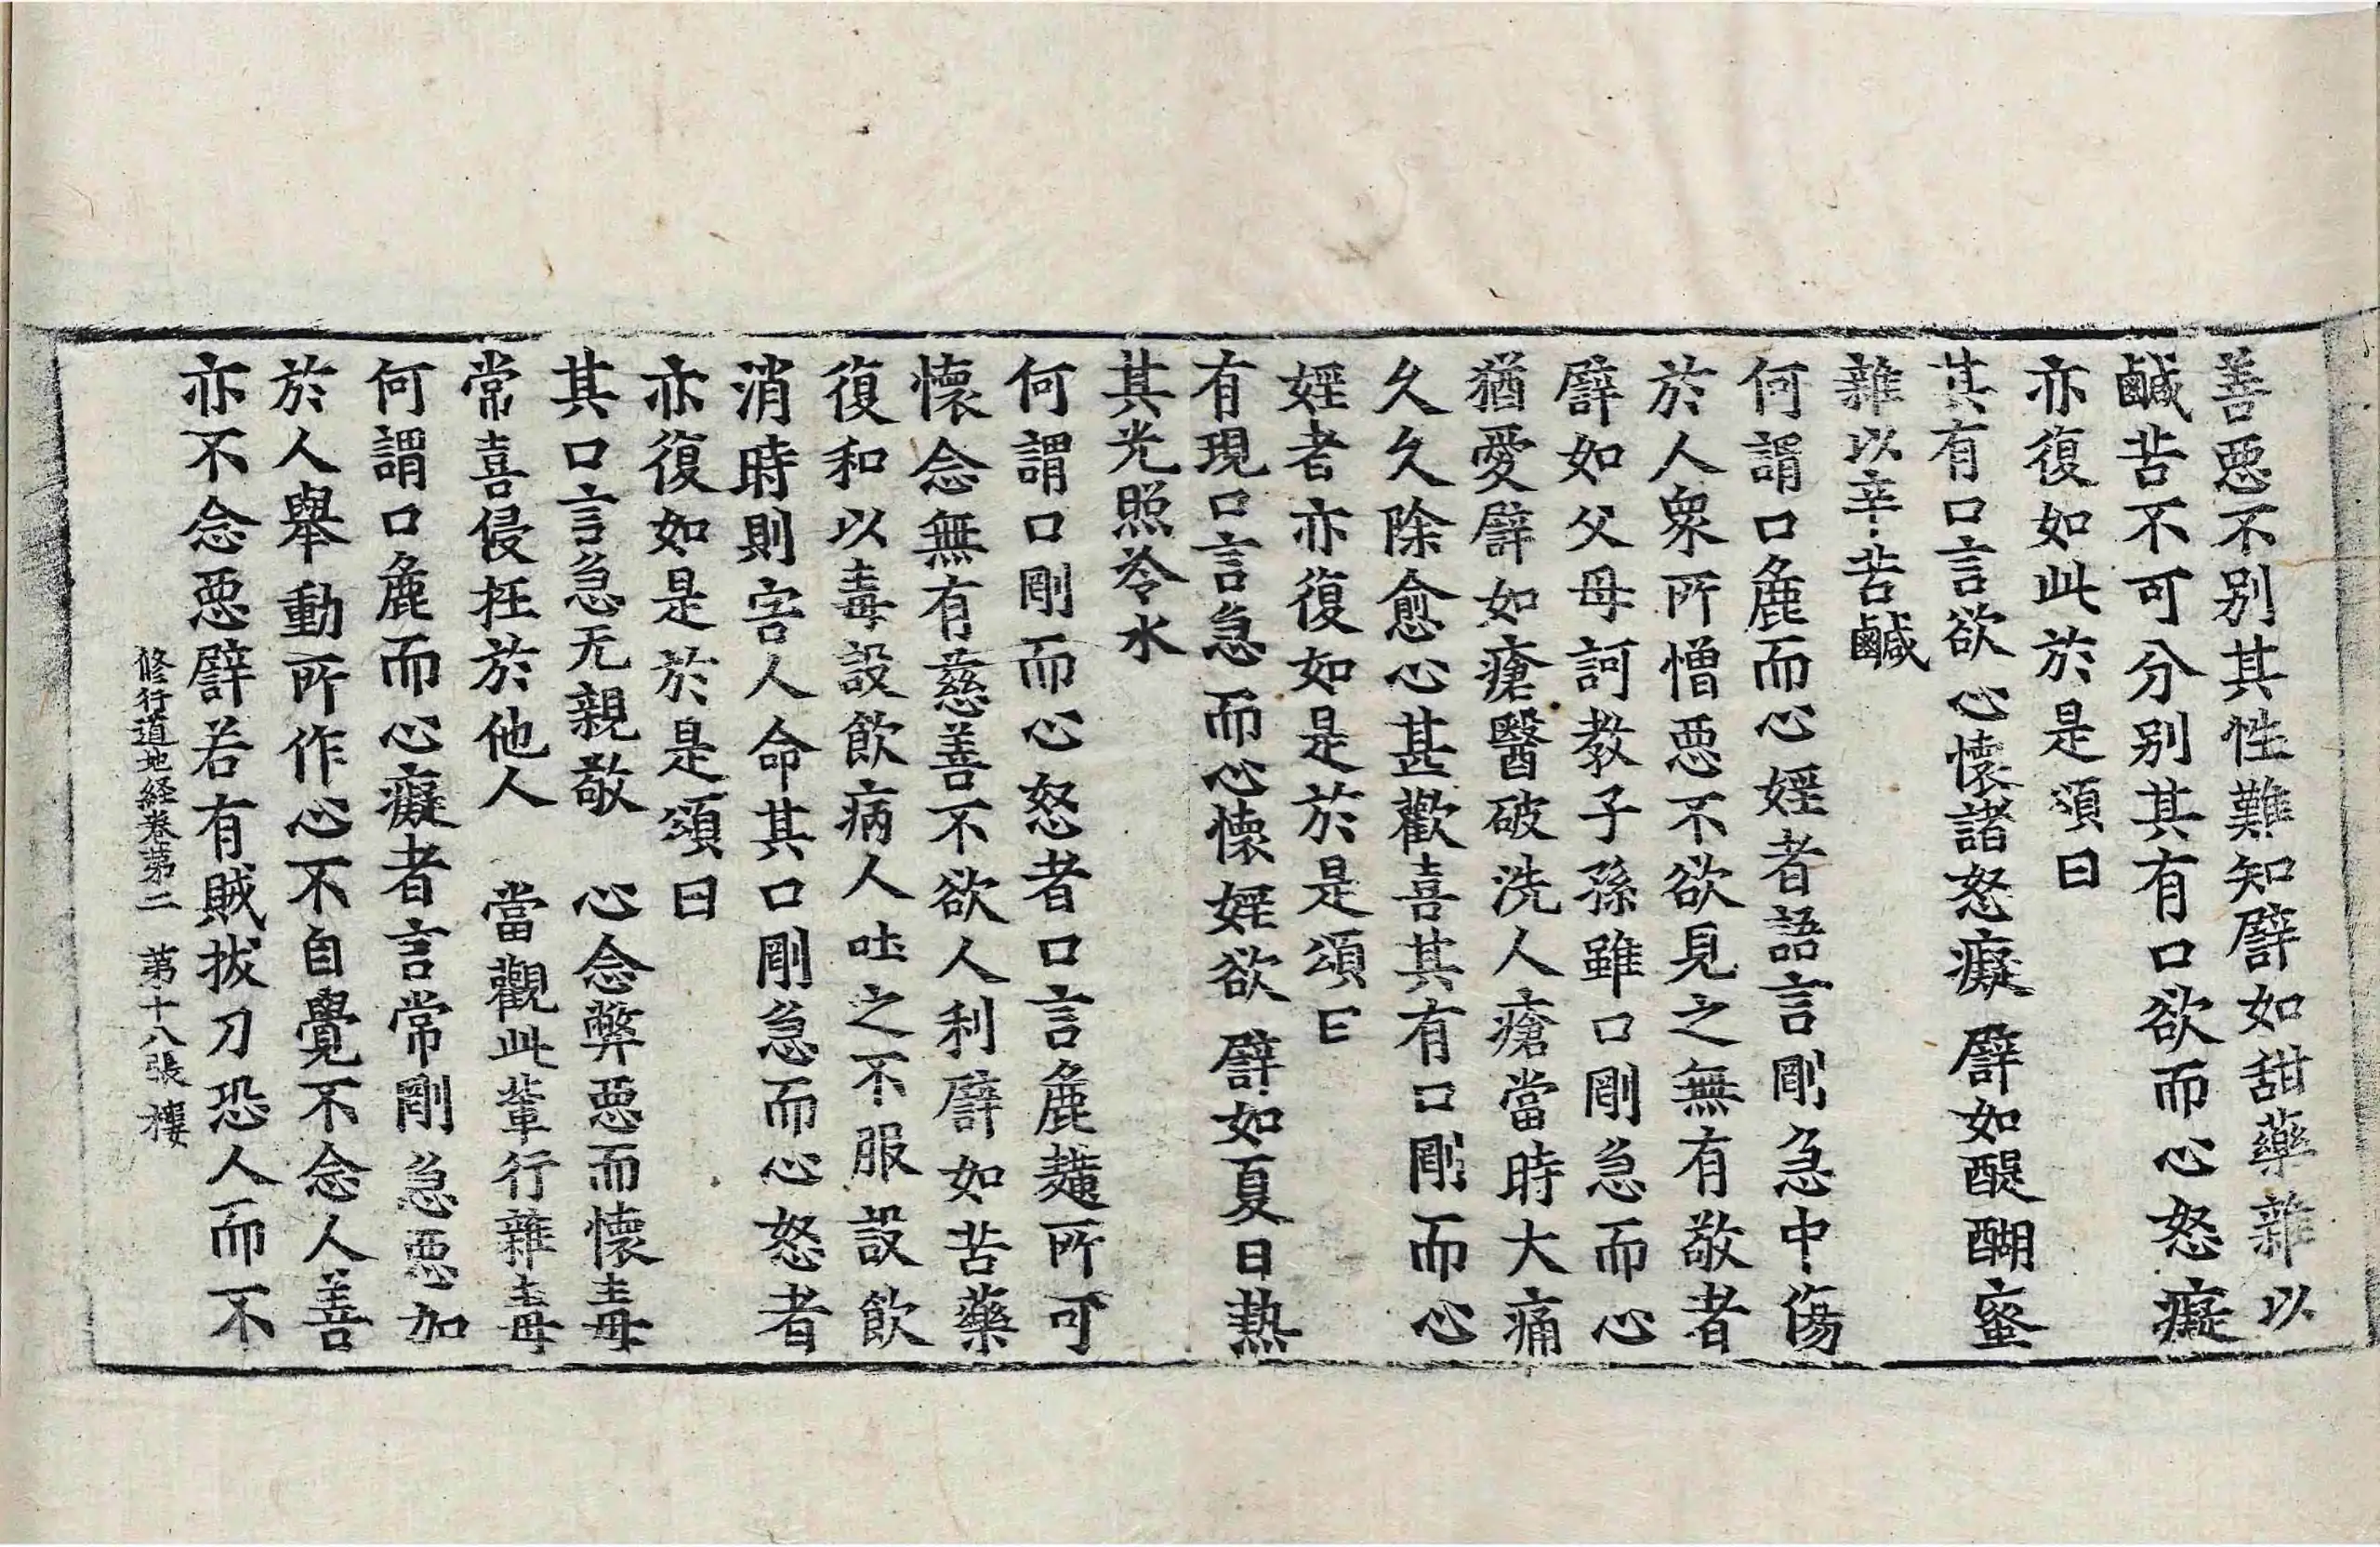 善惡不别其性難知譬如甜藥雜以
鹹苦不可分别其有口欲而心怒癡
亦復如此於是頌曰
其有口言欲心懷諸怒癡 譬如醍醐蜜
雜以辛苦鹹
何謂口麁而心婬者語言剛急中傷
於人衆所憎惡不欲見之無有敬者
譬如父母訶教子孫雖口剛急而心
猶愛譬如瘡醫破洗人瘡當時大痛
久久除愈心甚歡喜其有口剛而心
婬者亦復如是於是頌曰
有現口言急而心懷婬欲 譬如夏日熱
其光照冷水
何謂口剛而心怒者口言麁獷所可
懷念無有慈善不欲人利譬如苦藥
復和以毒設飲病人吐之不服設飲
消時則害人命其口剛急而心怒者
亦復如是於是頌曰
其口言急无親敬 心念弊惡而懷毒
常喜侵抂於他人 當觀此輩行雜毒
何謂口麁而心癡者言常剛急惡加
於人舉動所作心不自覺不念人善
亦不念惡譬若有賊拔刀恐人而不
修行道地経卷第二 第十八張 樓